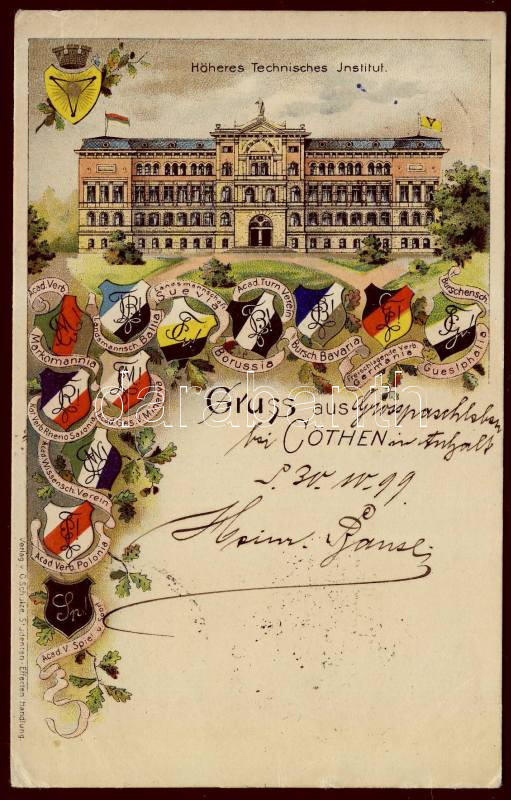 Höheres Technisches Jnstitut.
Acad. Verb.
Markomannia
Landsmannsch. Ballia
Landsmannschaft
Acad. Turn Verein
Borussia
Bursch. Bavaria
Freischlagende Verb.
Germania
Burschensch.
Guestphalia
Kat. Verb. Rheno Saxonia
Acad. Ges. Minerva
Gruss aus Grosspaschleben
bei CÖTHEN in Anhalt
d. 30.10.99
Acad. Wissensch. Verein
Heinr. Banse
Acad. Verb. Polonia
Acad. V. Spiel u. Sport
Verlag v. O. Schulze, Studenten-Effecten Handlung.
darabanth